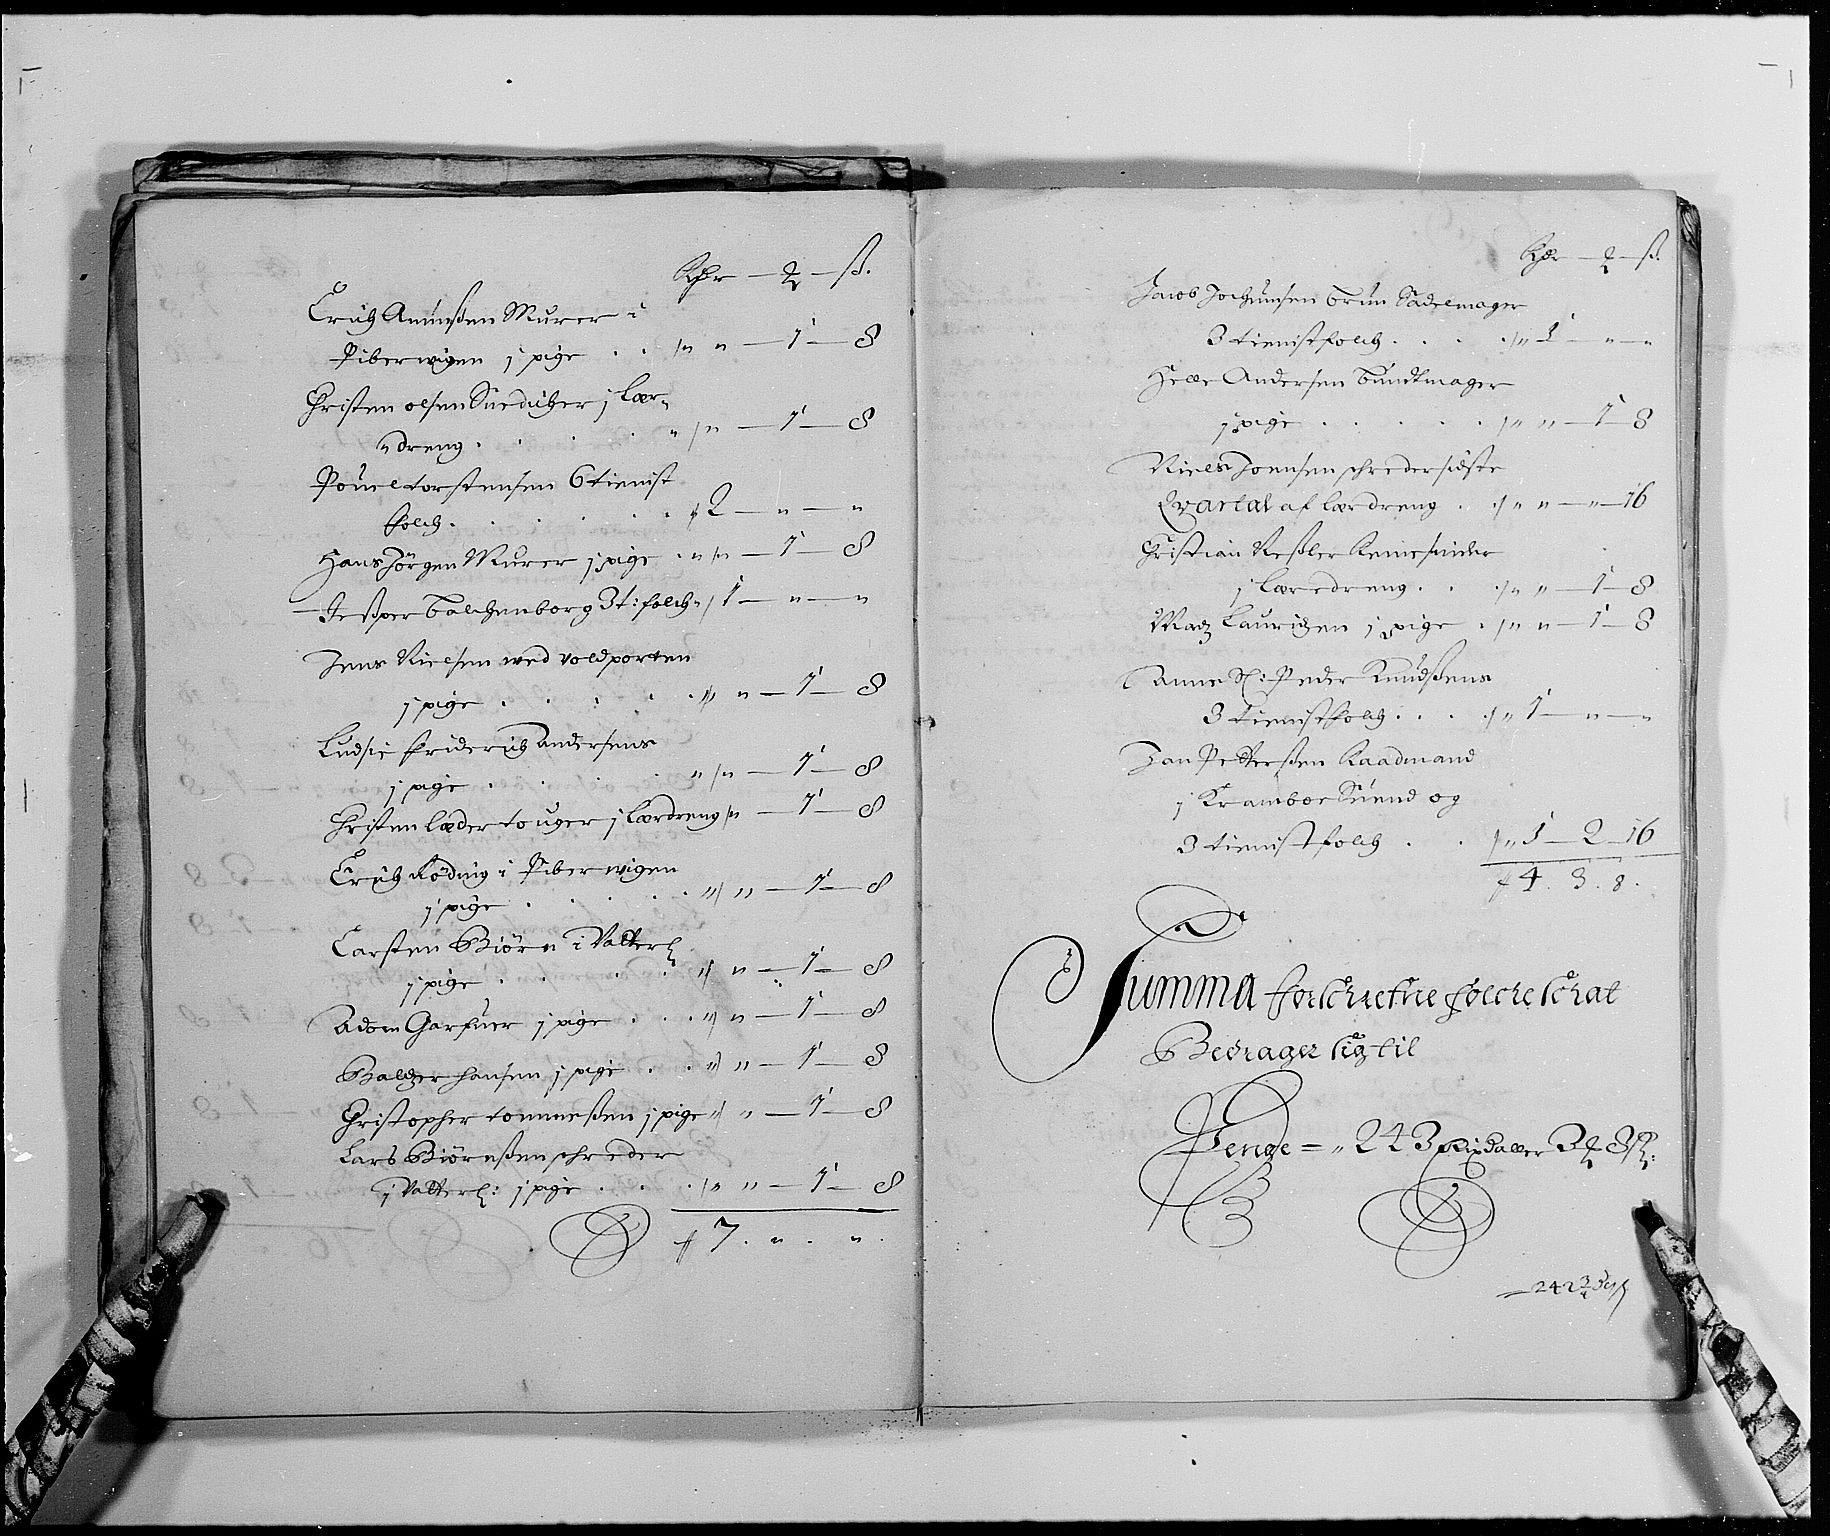 Rdr — ℥ — ß.
Erich Amunßen Murer i
Piberwigen j pige . . /" " — 1 — 8
Christen olsen Snedicher j Lær-
"dreng . . . . " /" — 1 — 8
Pouel torstensen 6 tienist
folch . . . . . . // 2 — " — "
Hans Jörgen Murer j pige . " /" — 1 — 8
Jesper Falchenborg 3 t: folch " / 1 — " — "
Jens Nielsen wed voldporten
j pige . . . . . "/ " — 1 — 8
Ludvig friderich andersens
j pige . . . . " /" — 1 — 8
Christen læder touger j Lærdreng /" — 1 — 8
Erich Röding i Piberwigen
j pige . . . . . "/ " — 1 — 8
Carsten Biörn i Vatterl
j pige . . . . "/ " — 1 — 8
Adam Garfuer j pige . . . "/ " — 1 — 8
Baltzer hansen j pige . . "/ " — 1 — 8
Christopher tommeßen j pige "/ " — 1 — 8
Lars Biörnßen schreder
j Vatterl: j pige . . . ./" " — 1 — 8
// 7 . " . " .
Rdr — ℥ — ß.
Jacob Jochumsen brun Sadelmager
3 tienistfolch . . . . /" 1 — " — "
Helle Andersen bundtmager
j pige . . . . . /" " — 1 — 8
Niels Joensen schreder sidste
Qvartal af Lærdreng . ./ " " — " — 16
Christian Keßler Remesnider
j Læredreng . . ./" " — 1 — 8
Madz Lauritzen j pige . /" " — 1 — 8
Anne Sl: Peder Knudßens
3 tienistfolch . . . ./ " 1 — " — "
Jan Petterßen Raadmand
j Kramboe Suend og
3 tienistfolch . . /" 1 — 2 — 16
// 4 . 3 . 8 .
Summa forschrefne folche schat
Bedrager sig til
Penge = " 243 Rixdaller 3 ℥ 8 ß: